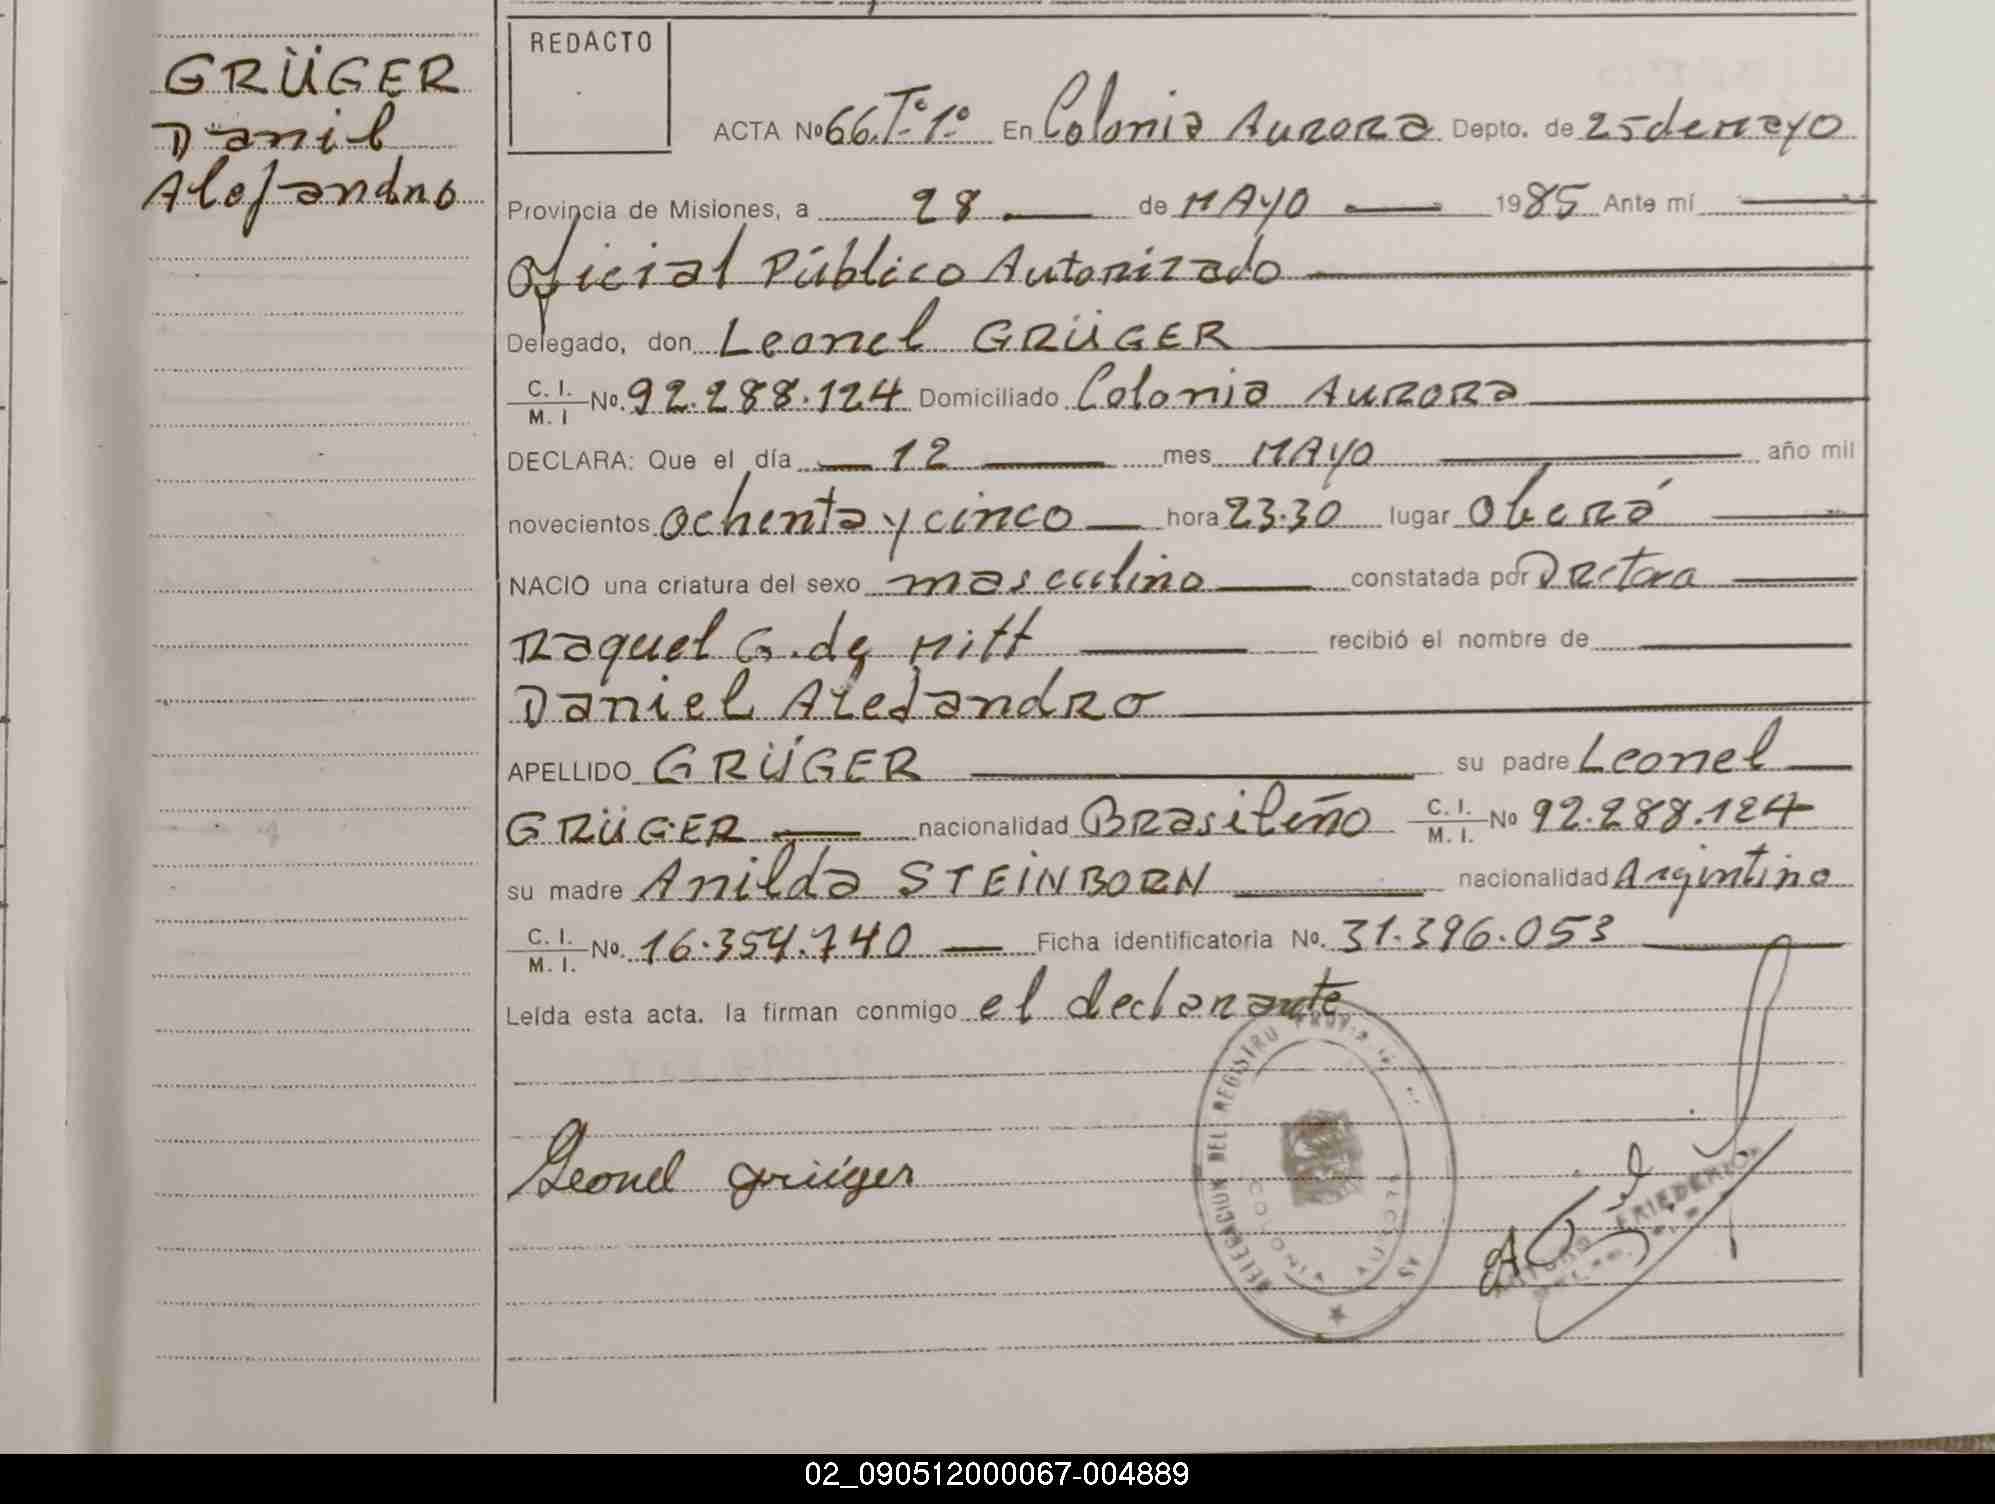 GRÜGER
Daniel
Alejandro
REDACTO
ACTA Nº 66.Tº.1º. En Colonia Aurora Depto. de 25 de mayo
Provincia de Misiones, a 28 de MAYO 1985 Ante mí
Oficial Público Autorizado
Delegado, don Leonel GRÜGER
C. I. / M. I Nº. 92.288.124 Domiciliado Colonia Aurora
DECLARA: Que el día 12 mes MAYO año mil
novecientos ochenta y cinco hora 23.30 lugar Oberá
NACIO una criatura del sexo masculino constatada por Dectora
Raquel G. de Mitt recibió el nombre de
Daniel Alejandro
APELLIDO GRÜGER su padre Leonel
GRÜGER nacionalidad Brasileño C. I. / M. I. Nº 92.288.124
su madre Anilda STEINBORN nacionalidad Argentina
C. I. / M. I. Nº. 16.354.740 Ficha identificatoria Nº. 31.396.053
Leída esta acta. la firman conmigo el declarante
Leonel Grüger
DELEGACION DEL REGISTRO
COLONIA
02_090512000067-004889